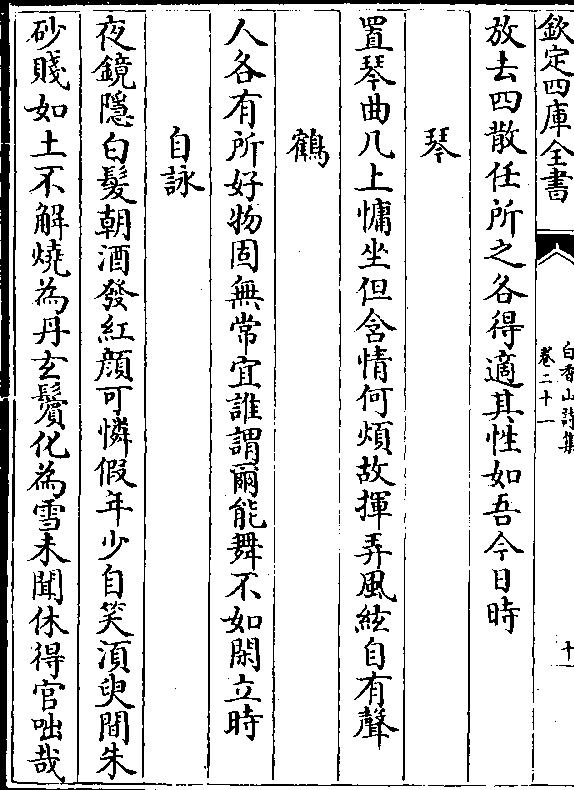 欽定四庫全書
白香山詩集
卷二十一
十一
放去四散任所之各得適其性如吾今日時
琴
置琴曲几上慵坐但含情何煩故揮弄風絃自有聲
鶴
人各有所好物固無常宜誰謂爾能舞不如閑立時
自詠
夜鏡隱白髮朝酒發紅顔可憐假年少自笑湏臾間朱
砂賤如土不解燒為丹玄鬢化為雪未聞休得官咄哉